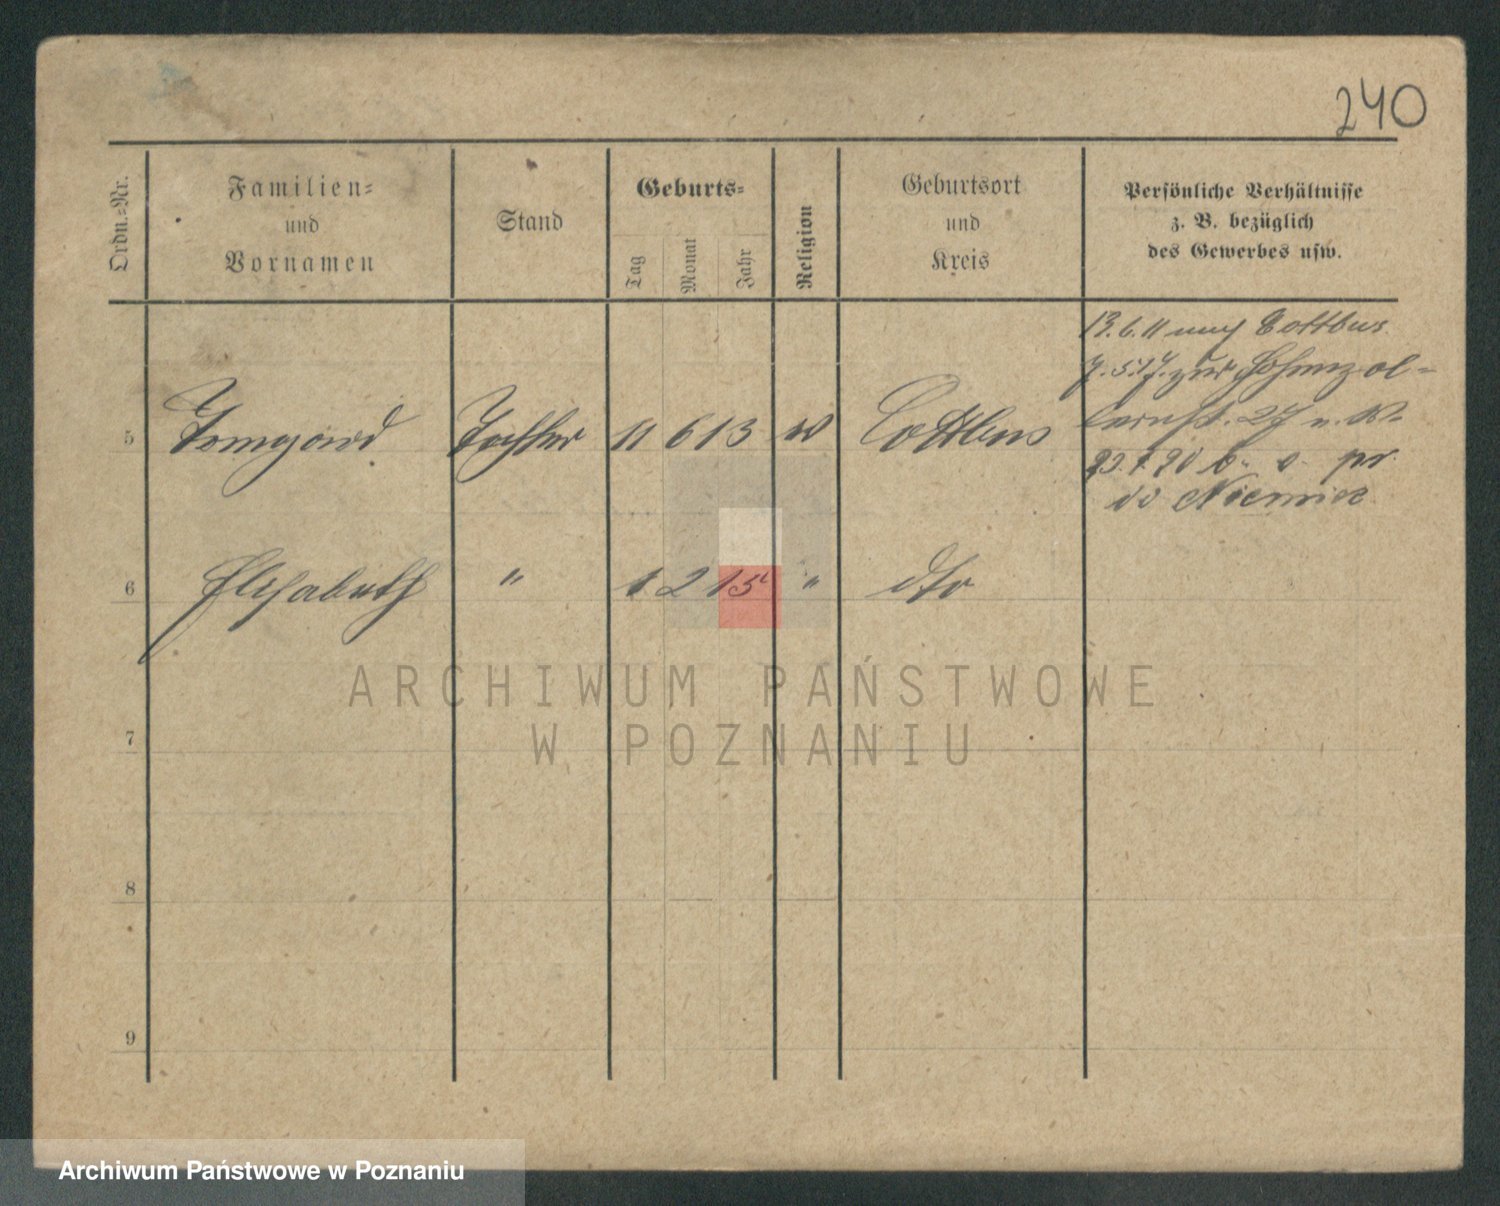 240
Ordn.-Nr.
Familien-
und
Vornamen
Stand
Geburts-
Tag
Monat
Jahr
Religion
Geburtsort
und
Kreis
Persönliche Verhältnisse
z. B. bezüglich
des Gewerbes usw.
13.6.11 nach Cottbus
7.5.17. zur Hohenzol-
lernst. 27 u. W.
5 Irmgard Tochter 11 6 13 w Cottbus
b. o. pr.
do Niemiec
6 Elisabeth " 1 2 15 " dto
7
8
9
ARCHIWUM PAŃSTWOWE
W POZNANIU
Archiwum Państwowe w Poznaniu